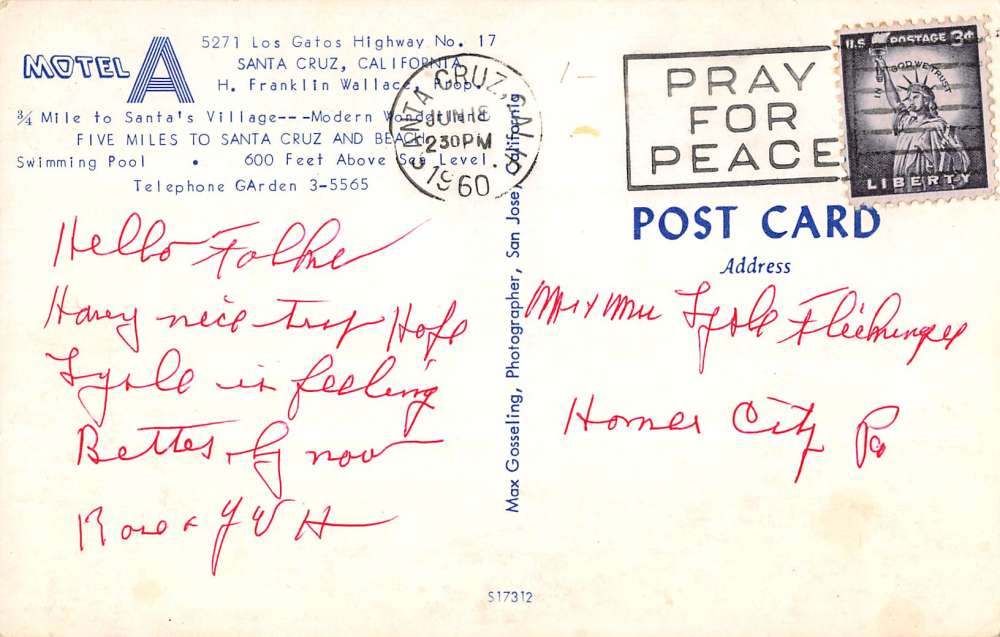 MOTEL A
5271 Los Gatos Highway No. 17
SANTA CRUZ, CALIFORNIA
H. Franklin Wallace, Prop.
¾ Mile to Santa's Village---Modern Wonderland
FIVE MILES TO SANTA CRUZ AND BEACH
Swimming Pool • 600 Feet Above Sea Level.
Telephone GArden 3-5565
SANTA CRUZ, CALIF.
JUN 18
2 30 PM
1960
1/-
PRAY
FOR
PEACE
U.S. POSTAGE 3¢
IN GOD WE TRUST
LIBERTY
Max Gosseling, Photographer, San Jose, California
POST CARD
Address
Hello Folks
Having nice trip Hope
Lysle is feeling
Better by now
Rose & J W H
Mr & Mrs Lysle
Homer City Pa
S17312